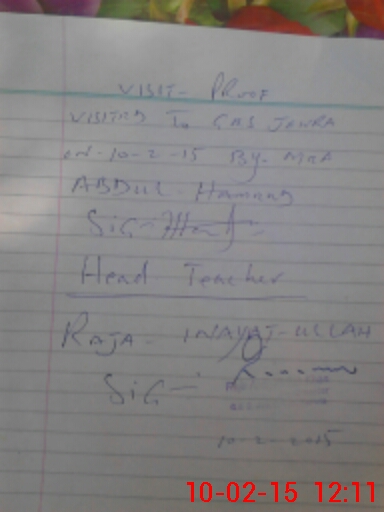 VISIT- PROOF
VISITED To GBS JANRA
on-10-2-15 By- MEA
ABDUL- Hameed
SiG-
Head Teacher
RAJA- INAYAT-ULLAH
SiG-
10-2-2015
10-02-15 12:11